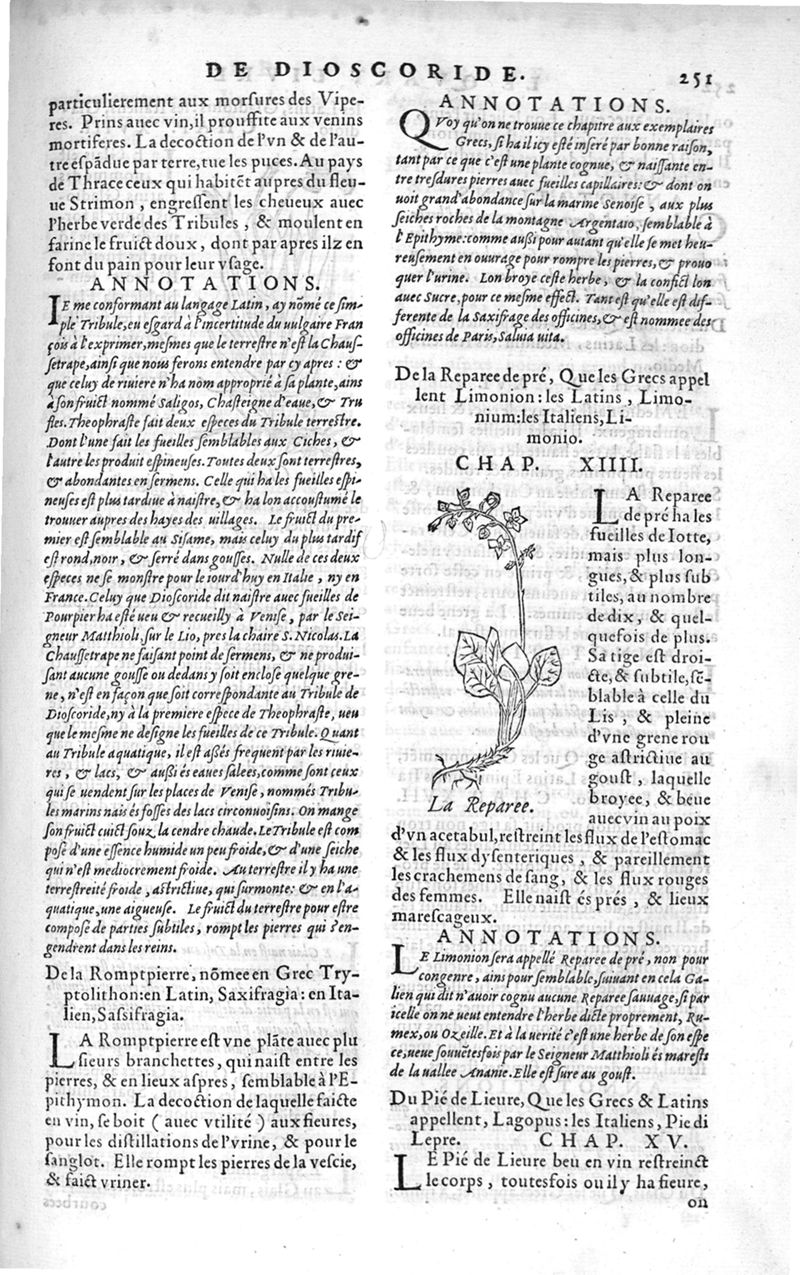 DE DIOSCORIDE.
251
particulierement aux morsures des Vipe-
res. Prins auec vin, il prouffite aux venins
mortiferes. La decoction de l'vn & de l'au-
tre espãdue par terre, tue les puces. Au pays
de Thrace ceux qui habitẽt aupres du fleu-
ue Strimon, engressent les cheueux auec
l'herbe verde des Tribules, & moulent en
farine le fruict doux, dont par apres ilz en
font du pain pour leur vsage.
ANNOTATIONS.
IE me conformant au langage Latin, ay nõmé ce sim-
ple Tribule, eu esgard à l'incertitude du uulgaire Fran
çois à l'exprimer, mesmes que le terrestre n'est la Chaus-
setrape, ainsi que nous ferons entendre par cy apres: &
que celuy de riuiere n'ha nõm approprié à sa plante, ains
à son fruict nommé Saligos, Chasteigne d'eaue, & Tru
fles. Theophraste fait deux especes du Tribule terrestre.
Dont l'une fait les fueilles semblables aux Ciches, &
l'autre les produit espineuses. Toutes deux sont terrestres,
& abondantes en sermens. Celle qui ha les fueilles espi-
neuses est plus tardiue à naistre, & ha lon accoustumé le
trouuer aupres des hayes des uillages. Le fruict du pre-
mier est semblable au Sisame, mais celuy du plus tardif
est rond, noir, & serré dans gousses. Nulle de ces deux
especes ne se monstre pour le iourd'huy en Italie, ny en
France. Celuy que Dioscoride dit naistre auec fueilles de
Pourpier ha esté ueu & recueilly à Venise, par le Sei-
gneur Matthioli, sur le Lio, pres la chaire S. Nicolas. La
Chaussetrape ne faisant point de sermens, & ne produi-
sant aucune gousse ou dedans y soit enclose quelque gre-
ne, n'est en façon que soit correspondante au Tribule de
Dioscoride, ny à la premiere espece de Theophraste, ueu
que le mesme ne designe les fueilles de ce Tribule. Quant
au Tribule aquatique, il est assés frequent par les riuie-
res, & lacs, & aussi és eaues salees, comme sont ceux
qui se uendent sur les places de Venise, nommés Tribu-
les marins nais és fosses des lacs circonuoisins. On mange
son fruict cuict souz la cendre chaude. Le Tribule est com
posé d'une essence humide un peu froide, & d'une seiche
qui n'est mediocrement froide. Au terrestre il y ha une
terrestreité froide, astrictiue, qui surmonte: & en l'a-
quatique, une aigueuse. Le fruict du terrestre pour estre
composé de parties subtiles, rompt les pierres qui s'en-
gendrent dans les reins.
De la Romptpierre, nõmee en Grec Try-
ptolithon: en Latin, Saxifragia: en Ita-
lien, Sassifragia.
LA Romptpierre est vne plãte auec plu
sieurs branchettes, qui naist entre les
pierres, & en lieux aspres, semblable à l'E-
pithymon. La decoction de laquelle faicte
en vin, se boit (auec vtilité) aux fieures,
pour les distillations de l'vrine, & pour le
sanglot. Elle rompt les pierres de la vescie,
& faict vriner.
ANNOTATIONS.
QVoy qu'on ne trouue ce chapitre aux exemplaires
Grecs, si ha il icy esté inseré par bonne raison,
tant par ce que c'est une plante cognue, & naissante en-
tre tresdures pierres auec fueilles capillaires: & dont on
uoit grand'abondance sur la marine Senoise, aux plus
seiches roches de la montagne Argentaio, semblable à
l'Epithyme: comme aussi pour autant qu'elle se met heu-
reusement en ouurage pour rompre les pierres, & prouo
quer l'urine. Lon broye ceste herbe, & la confict lon
auec Sucre, pour ce mesme effect. Tant est qu'elle est dif-
ferente de la Saxifrage des officines, & est nommee des
officines de Paris, Saluia uita.
De la Reparee de pré, Que les Grecs appel
lent Limonion: les Latins, Limo-
nium: les Italiens, Li-
monio.
CHAP. XIIII.
LA Reparee
de pré ha les
fueilles de Iotte,
mais plus lon-
gues, & plus sub
tiles, au nombre
de dix, & quel-
quefois de plus.
Sa tige est droi-
cte, & subtile, sẽ-
blable à celle du
Lis, & pleine
d'vne grene rou
ge astrictiue au
goust, laquelle
broyee, & beue
auec vin au poix
La Reparee.
d'vn acetabul, restreint les flux de l'estomac
& les flux dysenteriques, & pareillement
les crachemens de sang, & les flux rouges
des femmes. Elle naist és prés, & lieux
marescageux.
ANNOTATIONS.
LE Limonion sera appellé Reparee de pré, non pour
congenre, ains pour semblable, suiuant en cela Ga-
lien qui dit n'auoir cognu aucune Reparee sauuage, si par
icelle on ne ueut entendre l'herbe dicte proprement, Ru-
mex, ou Ozeille. Et à la verité c'est une herbe de son espe
ce, ueue souuẽtesfois par le Seigneur Matthioli és marests
de la uallee Ananie. Elle est sure au goust.
Du Pié de Lieure, Que les Grecs & Latins
appellent, Lagopus: les Italiens, Pie di
Lepre. CHAP. XV.
LE Pié de Lieure beu en vin restreinct
le corps, toutesfois ou il y ha fieure,
on